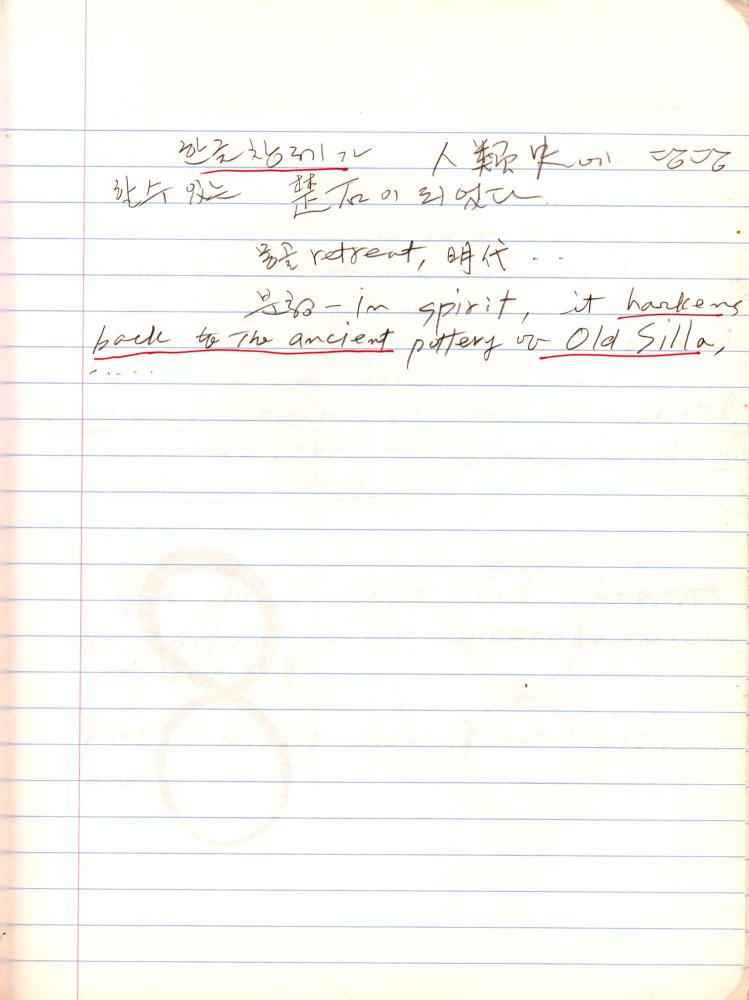 한글창제가 人類史에 공헌
할 수 있는 楚石이 되었다.
몽골 retreat, 明代 ..
분청 - in spirit, it harkens
back to the ancient pottery of Old Silla,
......